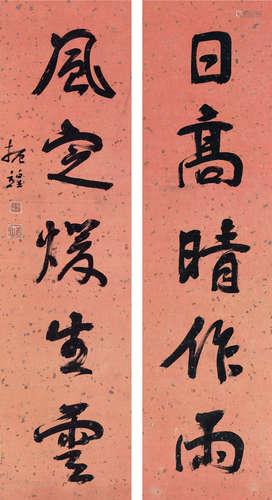 日高晴作雨
風定煖生雲
振鍠